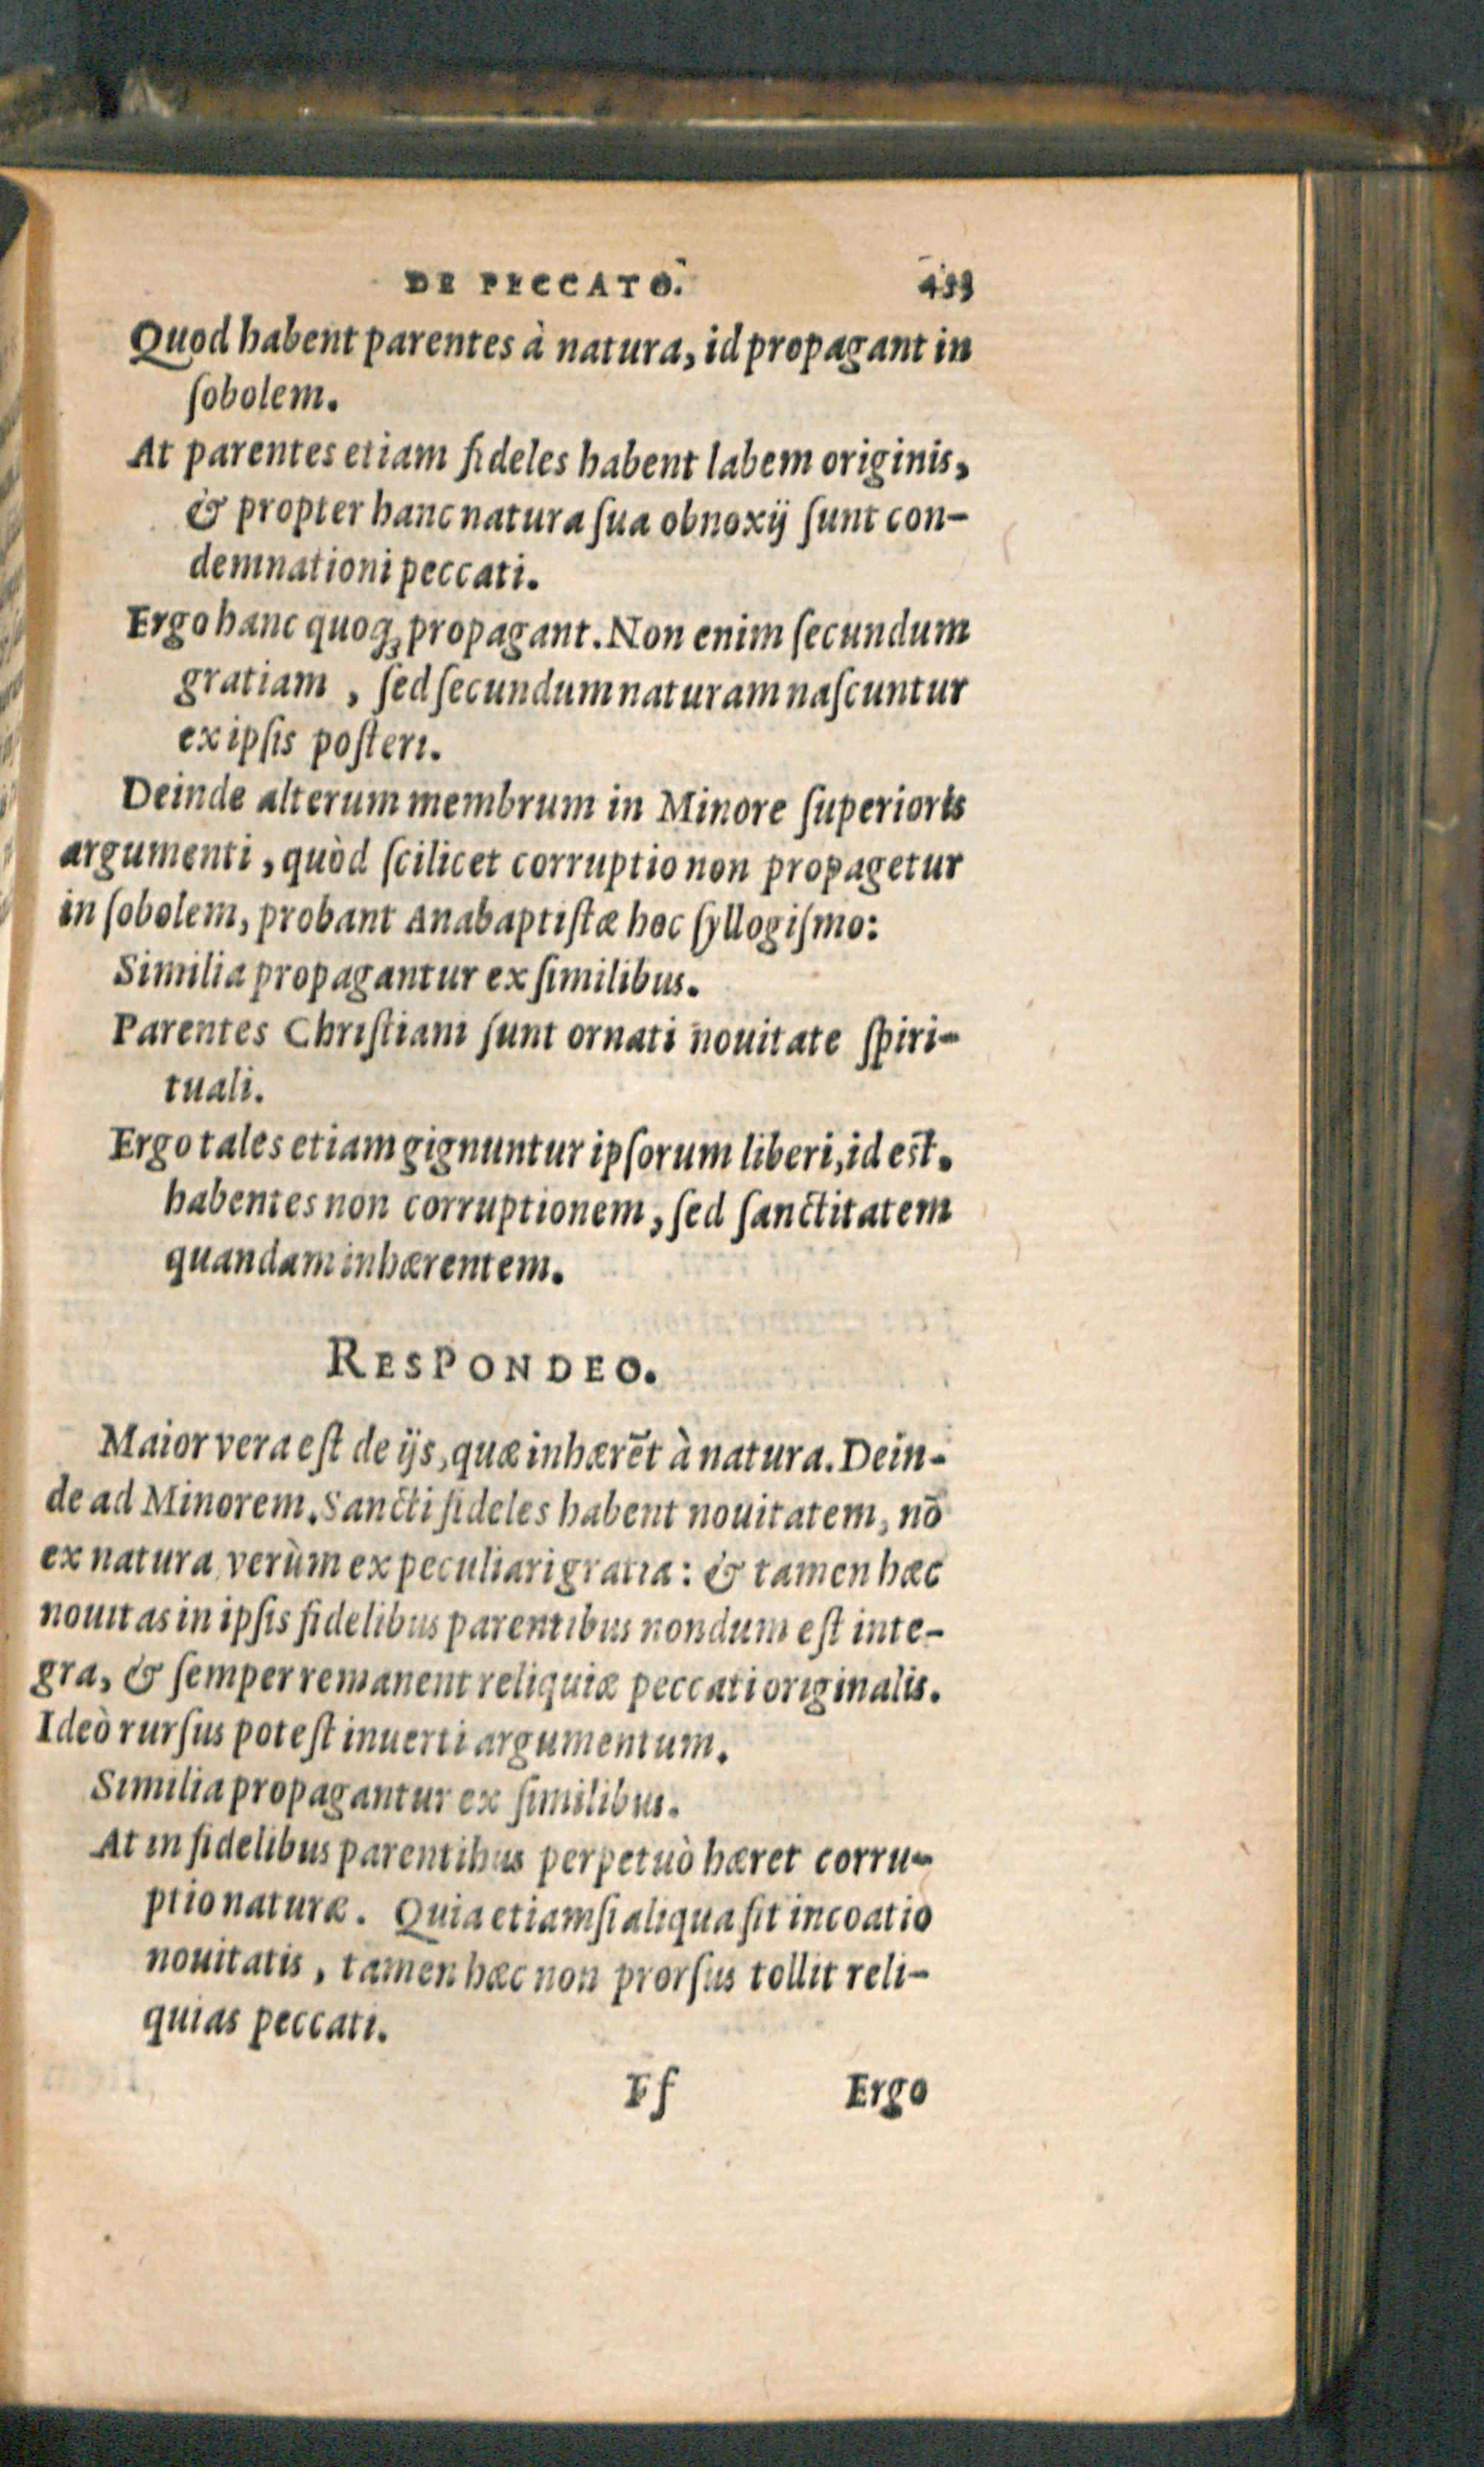 DE PECCATO. 433
Quod habent parentes à natura, id propagant in
ſobolem.
At parentes etiam fideles habent labem originis,
& propter hanc natura ſua obnoxij ſunt con-
demnationi peccati.
Ergo hanc quoq; propagant. Non enim ſecundum
gratiam, ſed ſecundum naturam naſcuntur
ex ipſis poſteri.
Deinde alterum membrum in Minore ſuperioris
argumenti, quòd ſcilicet corruptio non propagetur
in ſobolem, probant Anabaptiſtæ hoc ſyllogiſmo:
Similia propagantur ex ſimilibus.
Parentes Chriſtiani ſunt ornati nouitate ſpiri-
tuali.
Ergo tales etiam gignuntur ipſorum liberi, id eſt.
habentes non corruptionem, ſed ſanctitatem
quandam inhærentem.
RESPONDEO.
Maior vera eſt de ijs, quæ inhærēt à natura. Dein-
de ad Minorem. Sancti fideles habent nouitatem, nō
ex natura verùm ex peculiari gratia: & tamen hæc
nouitas in ipſis fidelibus parentibus nondum eſt inte-
gra, & ſemper remanent reliquiæ peccati originalis.
Ideò rurſus poteſt inuerti argumentum.
Similia propagantur ex ſimilibus.
At in fidelibus parentibus perpetuò hæret corru-
ptio naturæ. Quia etiamſi aliqua ſit incoatio
nouitatis, tamen hæc non prorſus tollit reli-
quias peccati.
Ff Ergo